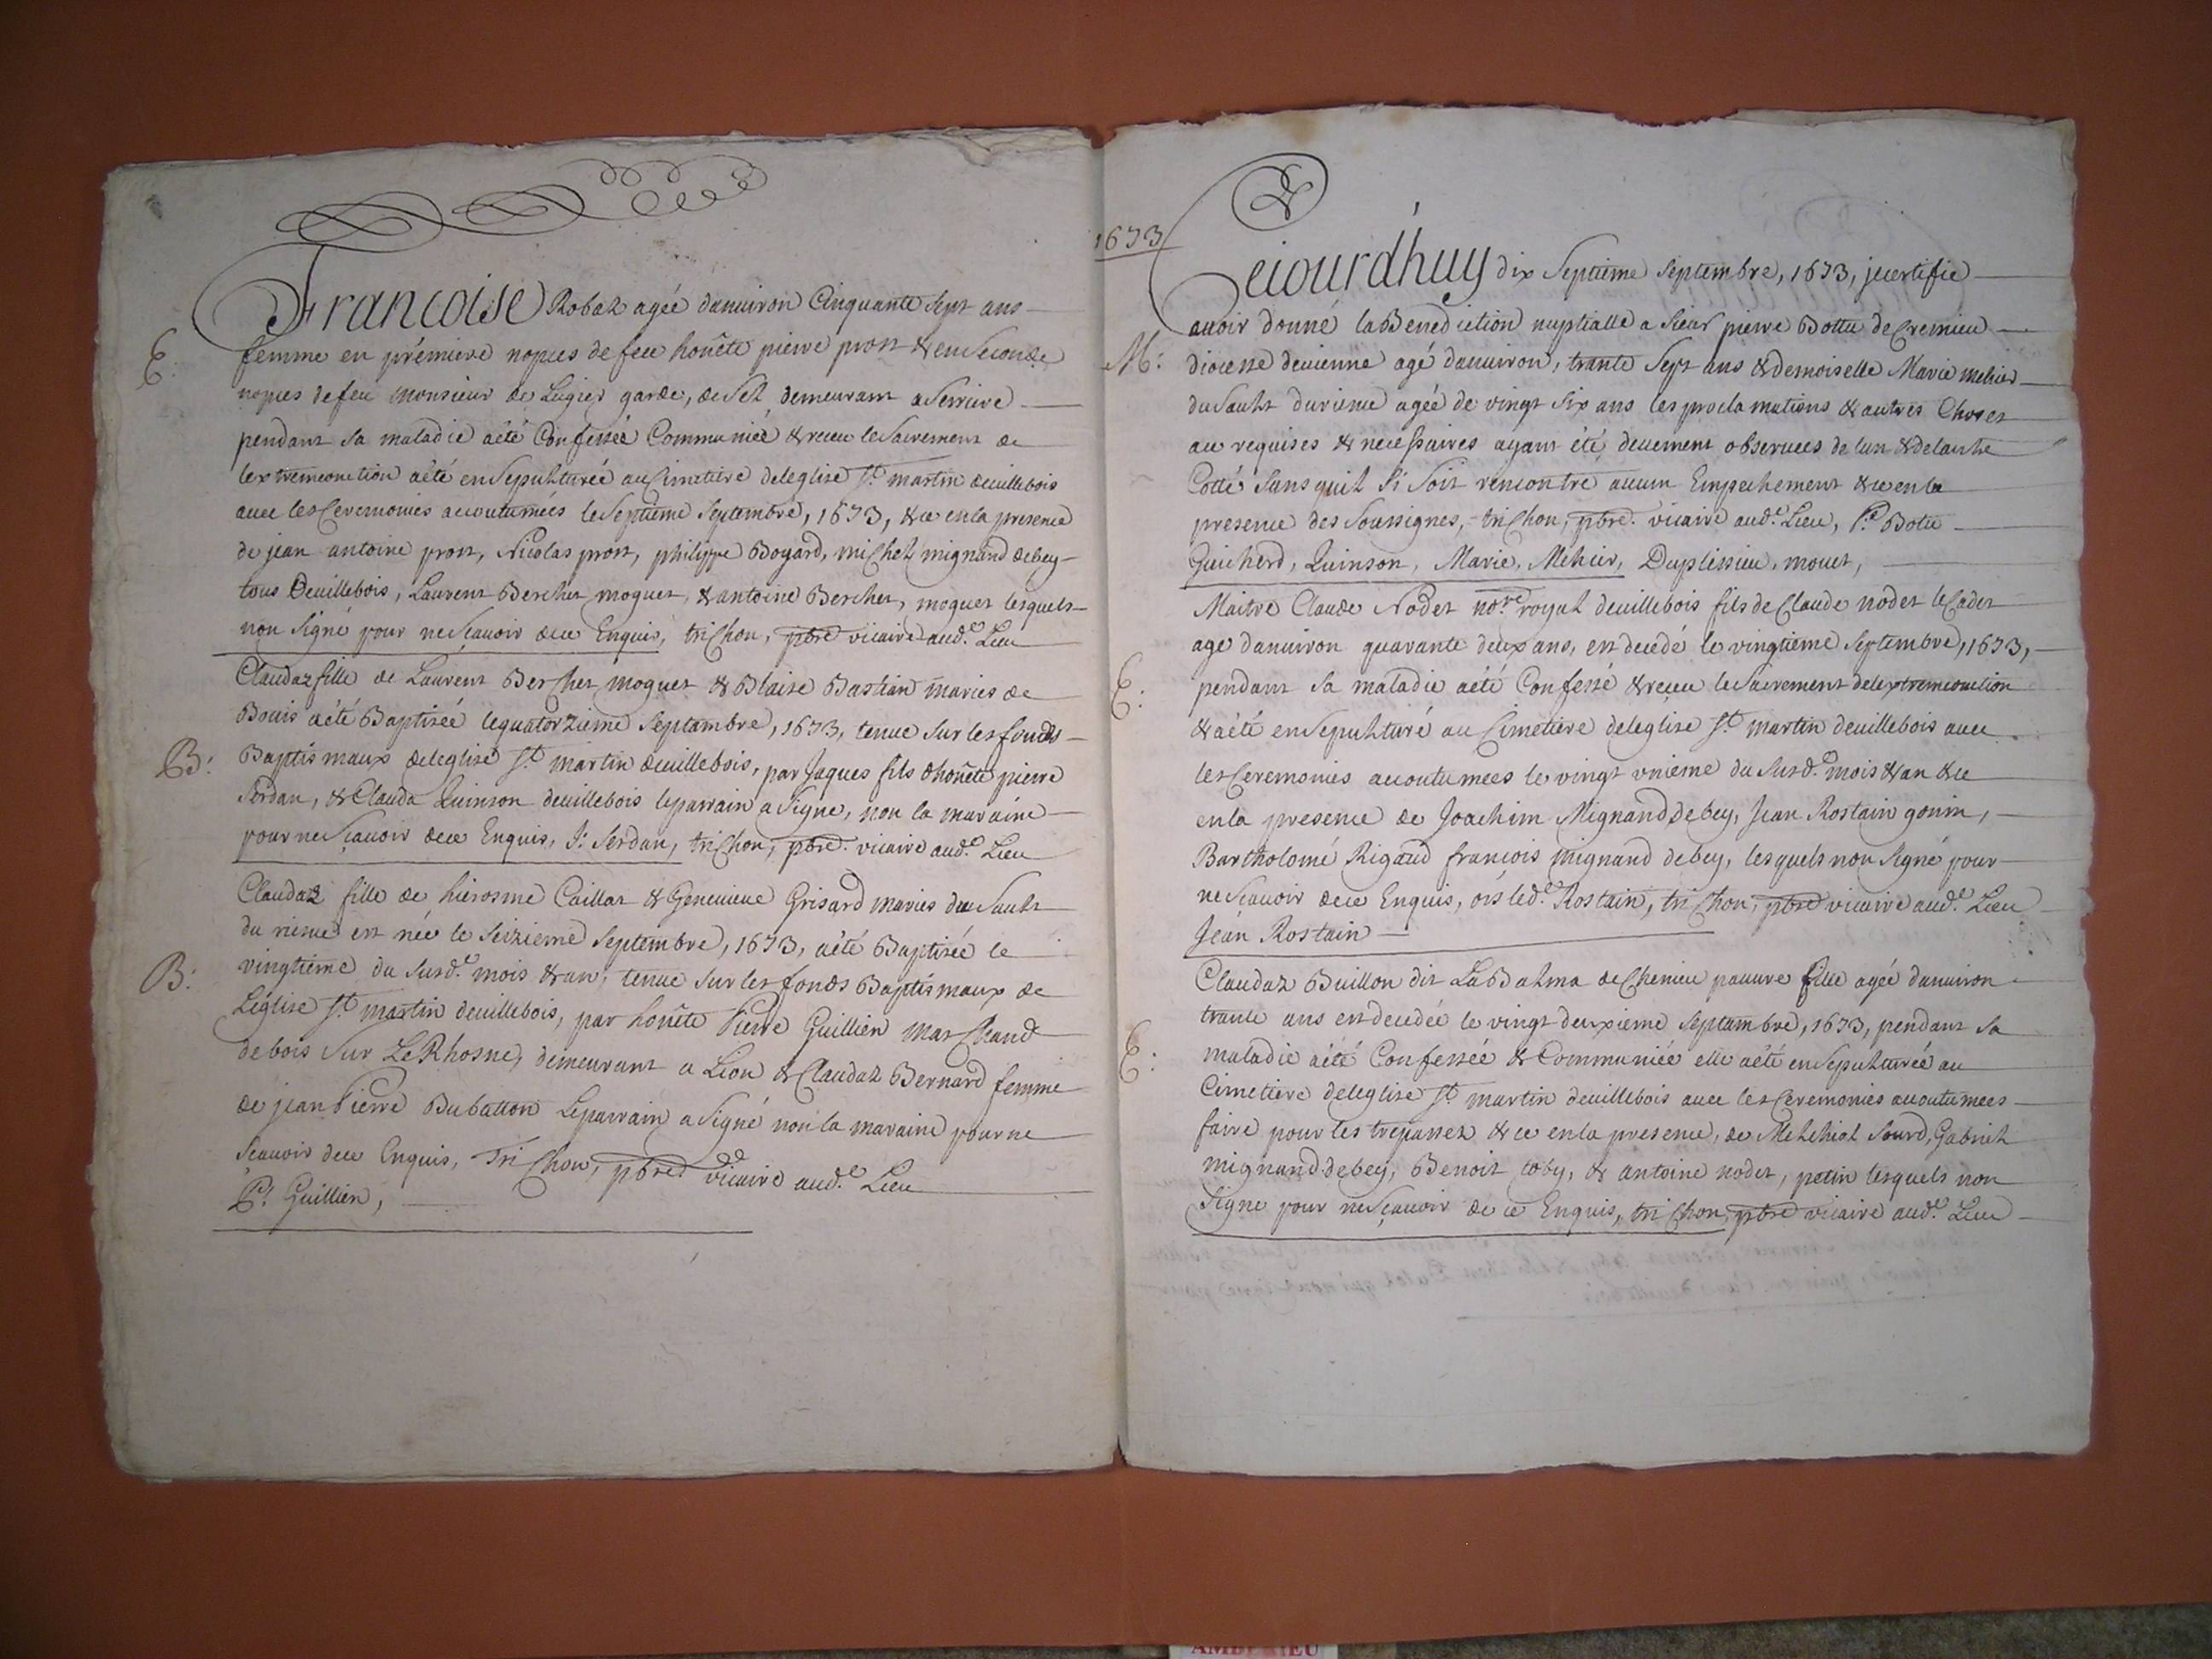 Francoise Robaz agée danuiron Cinquante Sept ans
E: femme en prémiere nopces de feu honête pierre prost & en Seconde
nopces de feu Monsieur de Lugier garde, de Sel, demeurant a Serriere
pendant sa maladie aété Confessée Communiée & receu le Sacrement de
lextremeonction aété enSepulturée au Cimetiere deleglise St. martin deuillebois
auec les Ceremonies accoutumées le Septieme Septembre, 1673, & ce en la presence
de jean antoine prost, Nicolas prost, philippe Boyard, michel mignand debey
tous Deuillebois, Laurent Bercher moguet, & antoine Bercher, moguet lesquels
non Signé pour ne Sçauoir dece Enquis, triChon, pbre vicaire aud.e Lieu
Claudaz fille de Laurent Bercher moguet & Blaise Bastian maries de
Bouis aété Baptisée le quatorzieme Septambre, 1673, tenue sur les fonds
B: Baptismaux deleglise St. martin deuillebois, par Jaques fils dhonête pierre
Serdan, & Clauda Quinson deuillebois leparrain a Signe, non la maraine
pour ne Sçauoir dece Enquis, J: Serdan, triChon, pbre. vicaire aud.e Lieu
Claudaz fille de hierosme Caillat & Geneuieue Grisard maries du Sault
du rieme est née le Seizieme Septembre, 1673, aété Baptisée le
B: vingtieme du Susd.e mois & an, tenue sur les fonds Baptismaux de
Léglise St. martin deuillebois, par honête Pierre Guillien marChand
de bois sur Le Rhosne, demeurant a Lion & Claudaz Bernard femme
de jean Pierre Dubatton Leparrain a Signé non la maraine pour ne
Scauoir dece Enquis, TriChon, pbre. vicaire aud.e Lieu
P: Guillien,
1673
Cejourdhuy dix Septieme Septembre, 1673, jecertifie
auoir donné la Benediction nuptialle a Sieur pierre Bottu de Cremieu
M: diocesse devienne agé danuiron, trante Sept ans & demoiselle Marie mehier
du Sault du rieme agée de vingt Six ans les proclamations & autres Choses
au requises & necessaires ayant été, deuement obseruees de lun & delautre
Cotté Sans quil Si Soit rencontre aucun Empechement & ce en la
presence des Soussignes, triChon, pbre. vicaire aud.e Lieu, P.e Botu
Guicherd, Quinson, Marie, Mehier, Duplessieu, mouet,
Maitre Claude Nodet no.re royal deuillebois fils de Claude nodet le Cadet
age danuiron quarante deux ans, est decedé le vingtieme Septembre, 1673,
E: pendant sa maladie aété Confessé & reçeu le Sacrement delextremeonction
& aété enSepulturé au Cimetiere deleglise St. martin deuillebois auec
les Ceremonies accoutumees le vingt vnieme du Susd.e mois & an & ce
en la presence de Joachim Mignand Debey, Jean Rostain gonin,
Bartholomé Rigaud francois mignand debey, lesquels non Signé pour
ne Scauoir dece Enquis, ors led.e Rostain, triChon, pbre vicaire aud.e Lieu
Jean Rostain
Claudaz Buillon dit La Balma de Chenieu pauure fille agée danuiron
trante ans est decedée le vingt deuxieme Septambre, 1673, pendant sa
E: maladie aété Confessée & Communiée elle aété enSepulturée au
Cimetiere deleglise St. martin deuillebois auec les Ceremonies accoutumees
faire pour les trepassez & ce en la presence, de Melchiol Sourd, Gabriel
mignand debey, Benoit Coby, & antoine nodet, petin lesquels non
Signe pour ne Sçauoir de ce Enquis, triChon, pbre vicaire aud.e Lieu